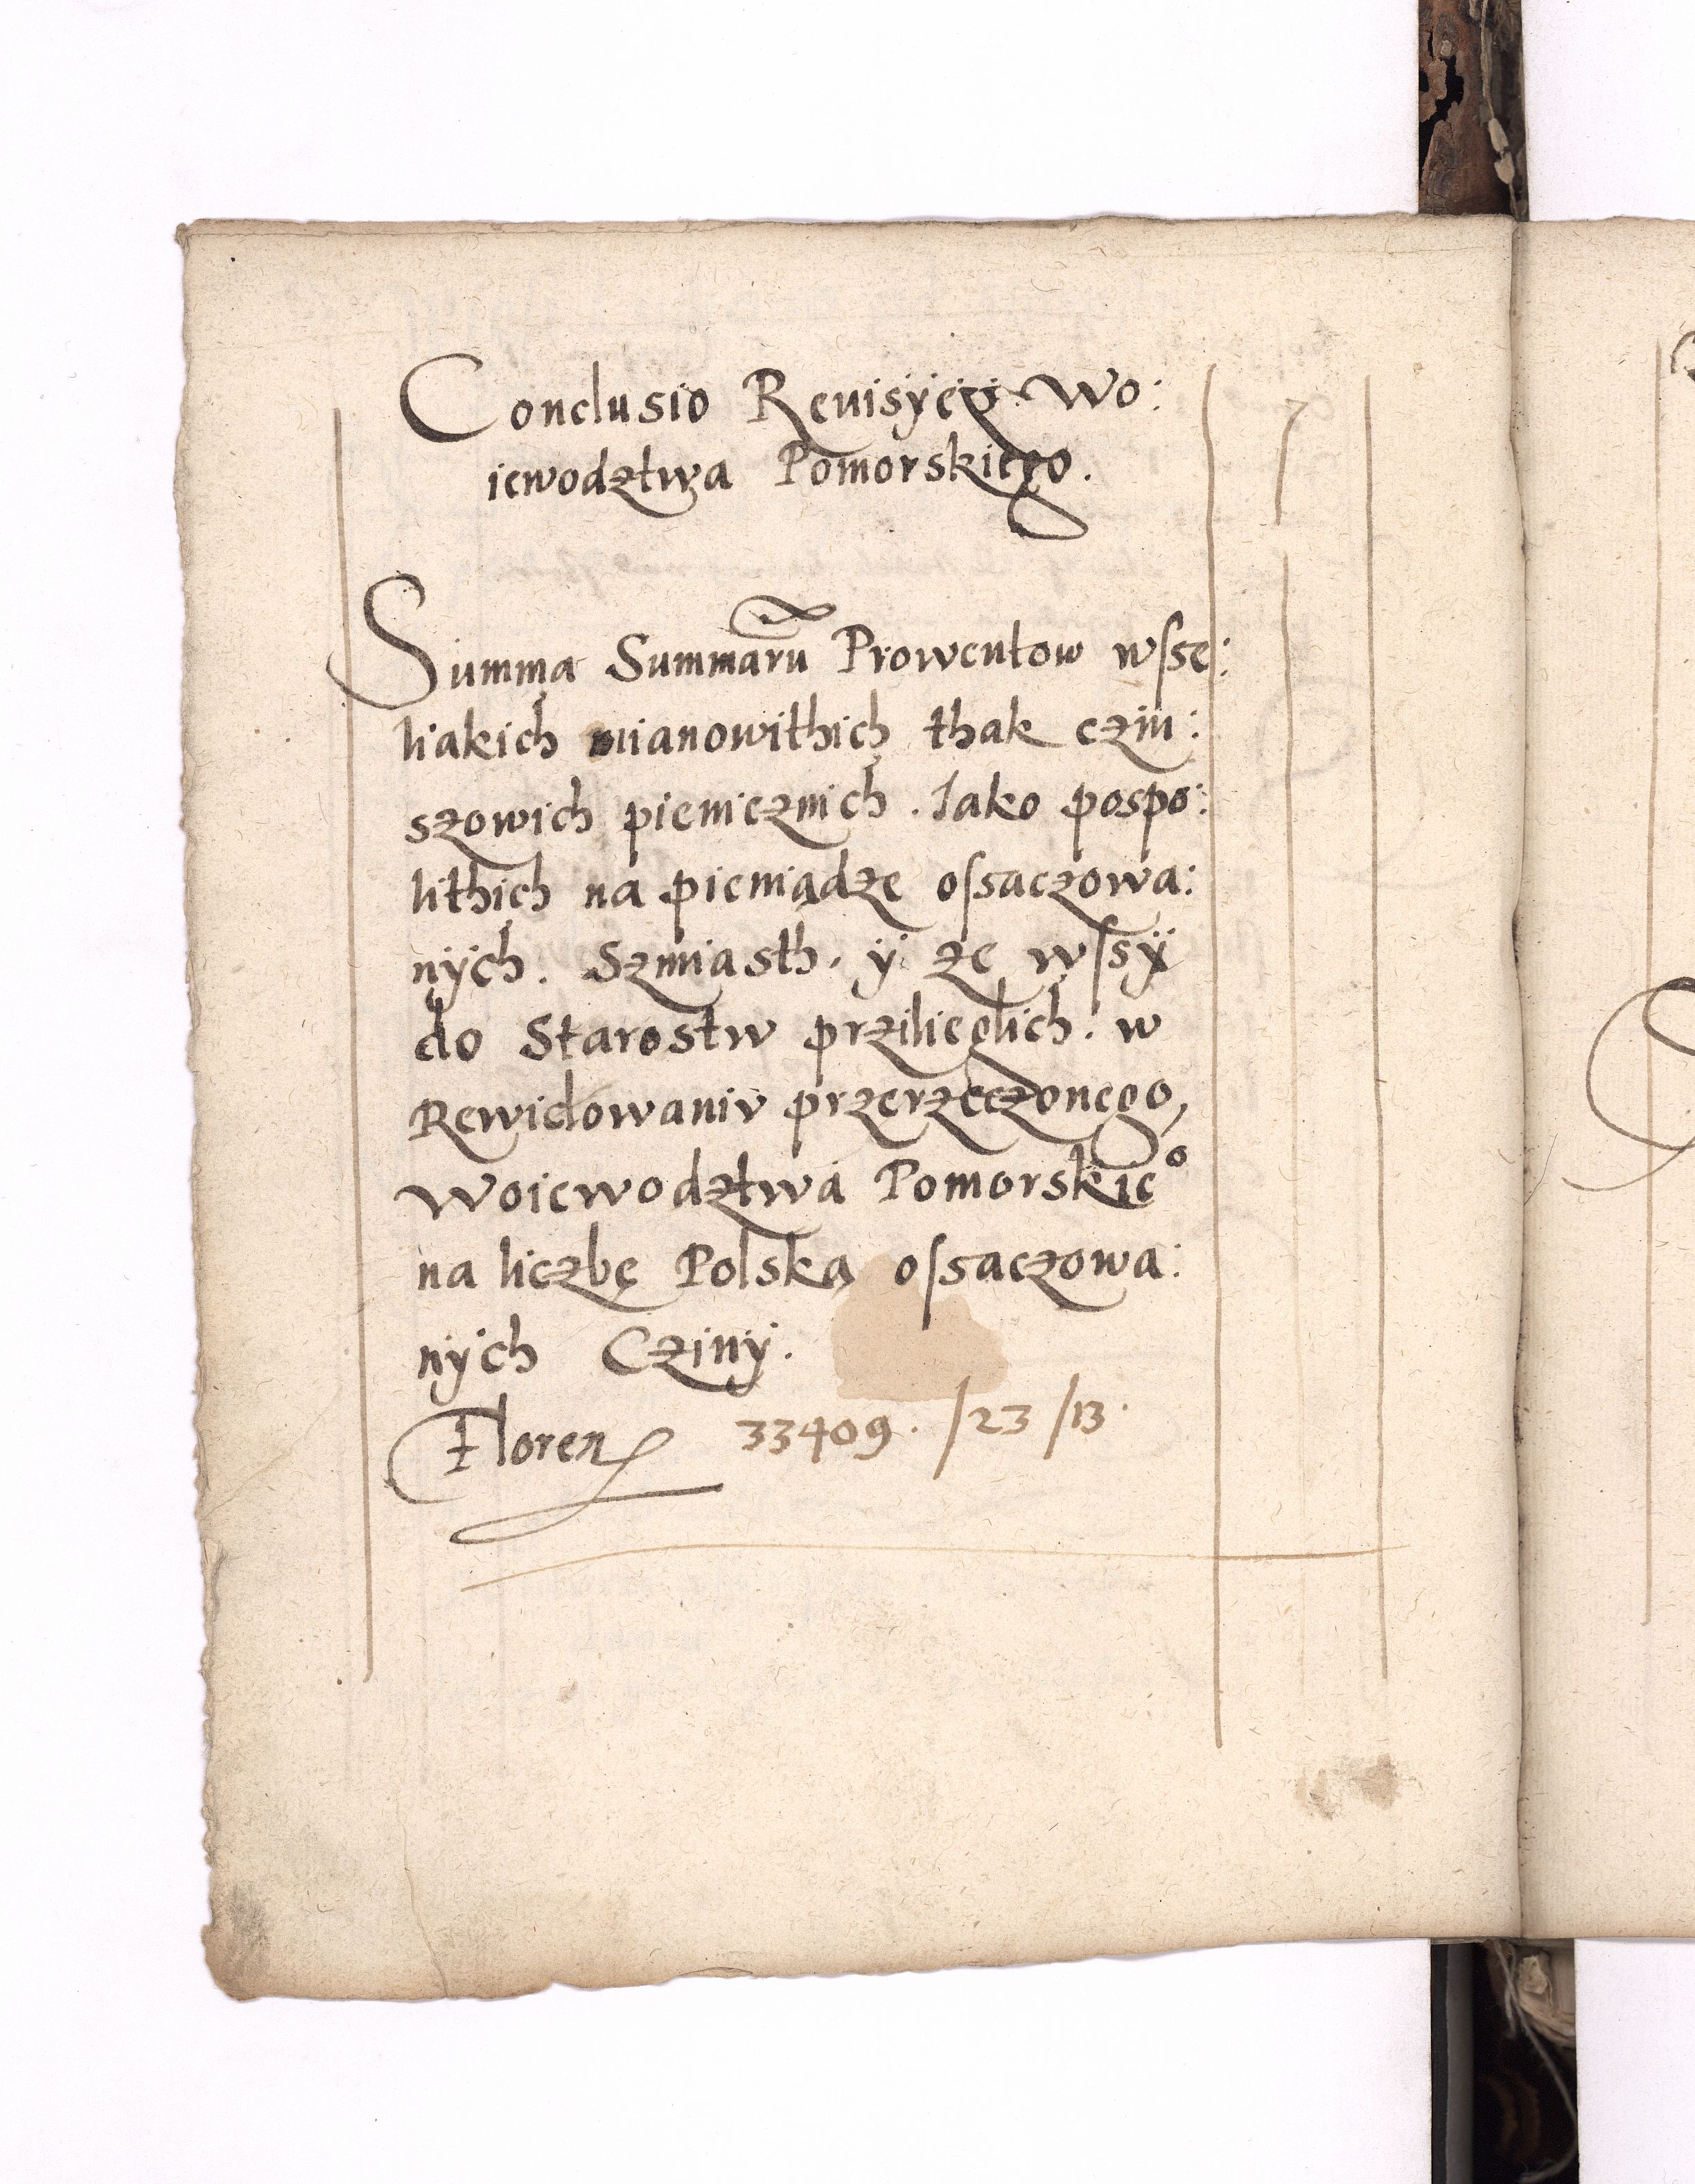 Conclusio Reuisÿeÿ Wo:
iewodztwa Pomorskiego.
Summa Summarũ Prowentow wſse:
liakich mianowithich thak cziń:
szowich pienieznich. Iako pospo:
lithich na pieniądze oſsaczowa:
nÿch. Szmiasth. ÿ ze wſsÿ
do Starostw przilieglich. w
Rewidowaniv przerzeczonego,
Woiewodztwa Pomorskieº
na liczbę Polską oſsaczowa:
nÿch Czinÿ.
Floren 33409. /23 /13.